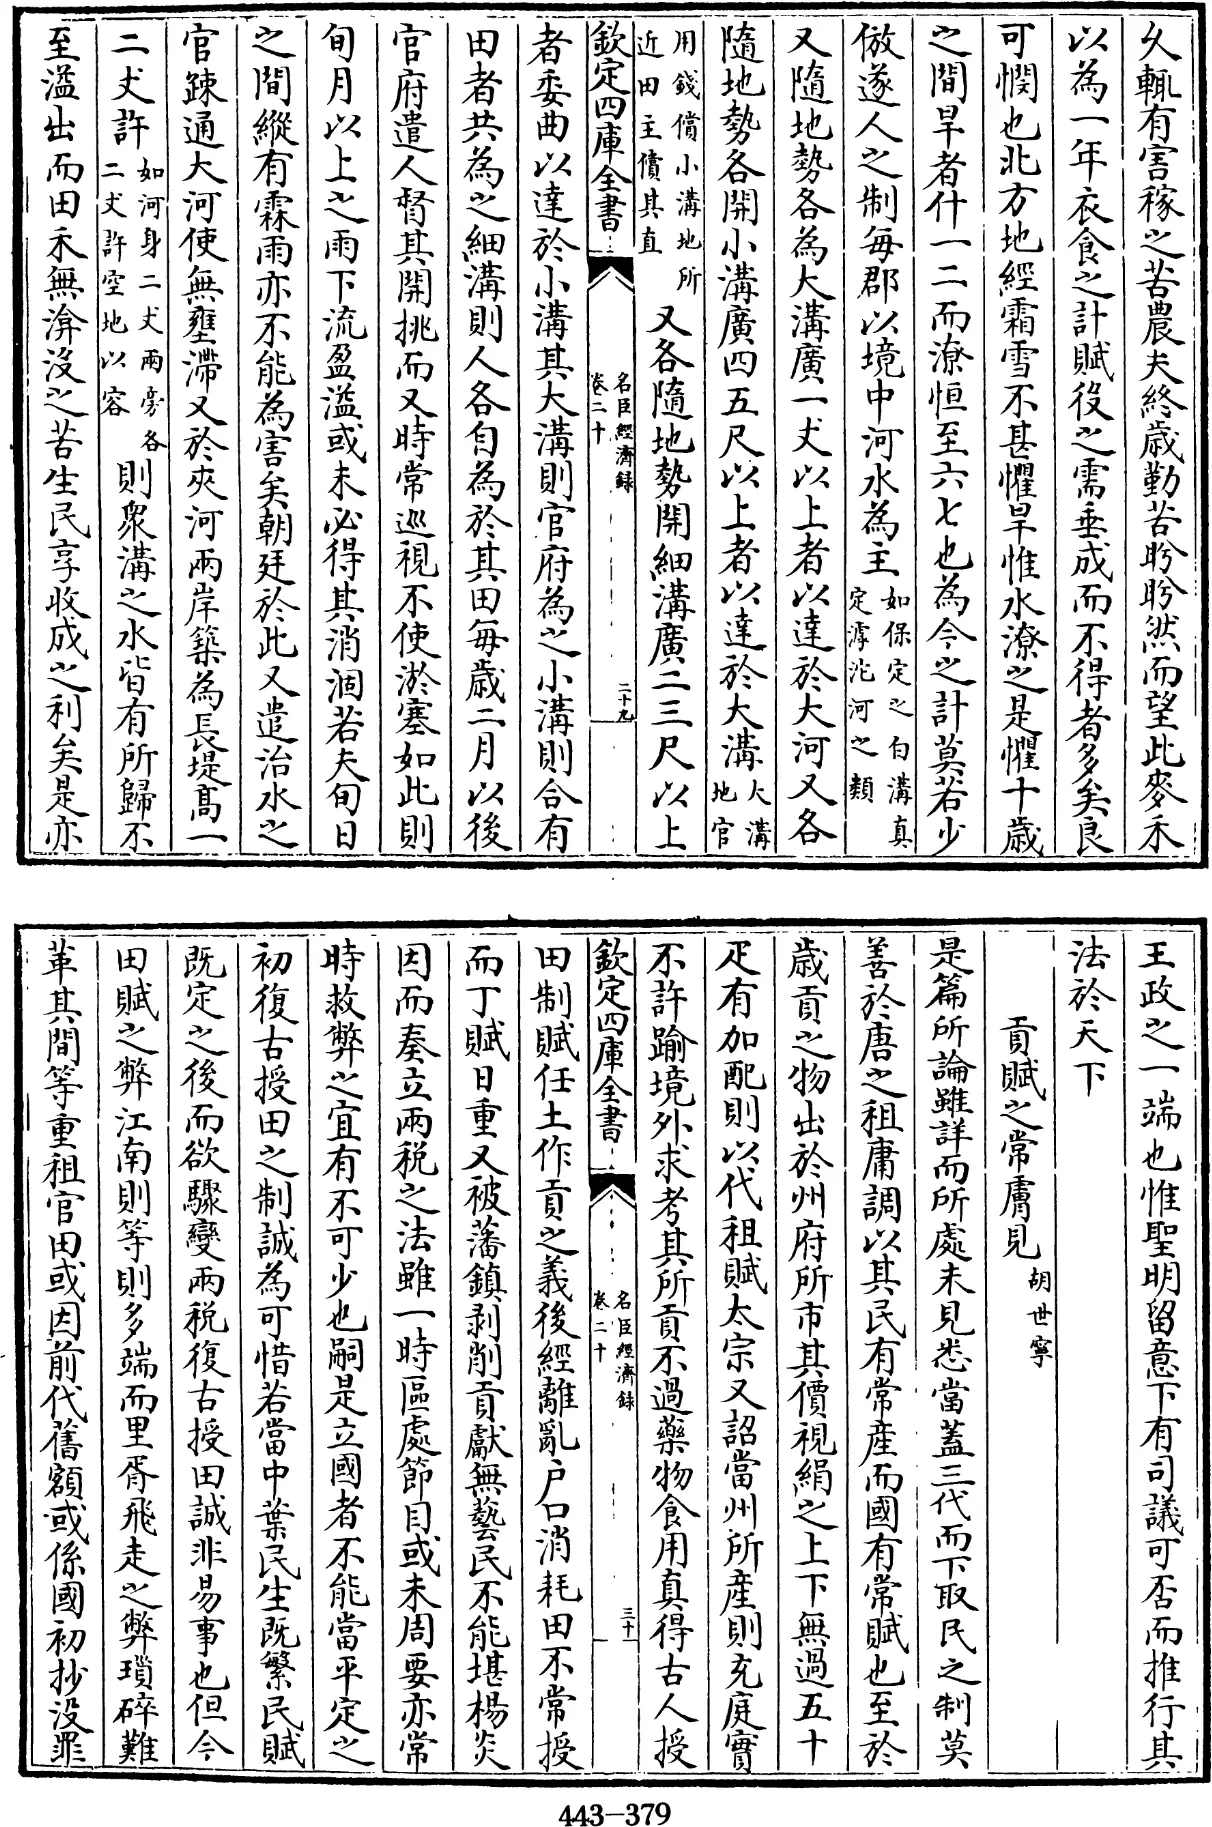 乆輒有害稼之苦農夫終歳勤苦盻盻然而望此麥禾
以為一年衣食之計賦役之需垂成而不得者多矣良
可憫也北方地經霜雪不甚懼旱惟水潦之是懼十歳
之間旱者什一二而潦恒至六七也為今之計莫若少
倣遂人之制每郡以境中河水為主如保定之白溝真定滹沱河之類
又隨地勢各為大溝廣一丈以上者以達於大河又各
隨地勢各開小溝廣四五尺以上者以達於大溝大溝地官
用錢償小溝地所近田主償其直又各隨地勢開細溝廣二三尺以上
欽定四庫全書
名臣經濟録
卷二十
二十九
者委曲以達於小溝其大溝則官府為之小溝則合有
田者共為之細溝則人各自為於其田每歳二月以後
官府遣人督其開挑而又時常巡視不使淤塞如此則
旬月以上之雨下流盈溢或未必得其消涸若夫旬日
之間縱有霖雨亦不能為害矣朝廷於此又遣治水之
官疎通大河使無壅滯又於夾河兩岸築為長堤髙一
二丈許如河身二丈兩旁各二丈許空地以容則衆溝之水皆有所歸不
至溢出而田禾無渰沒之苦生民享收成之利矣是亦
王政之一端也惟聖明留意下有司議可否而推行其
法於天下
貢賦之常膚見胡世寧
是篇所論雖詳而所處未見悉當蓋三代而下取民之制莫
善於唐之租庸調以其民有常産而國有常賦也至於
歳貢之物出於州府所市其價視絹之上下無過五十
疋有加配則以代租賦太宗又詔當州所産則充庭實
不許踰境外求考其所貢不過藥物食用真得古人授
欽定四庫全書
名臣經濟録
卷二十
三十
田制賦任土作貢之義後經離亂户口消耗田不常授
而丁賦日重又被藩鎮剥削貢獻無藝民不能堪楊炎
因而奏立兩税之法雖一時區處節目或未周要亦常
時救弊之宜有不可少也嗣是立國者不能當平定之
初復古授田之制誠為可惜若當中葉民生既繁民賦
既定之後而欲驟變兩税復古授田誠非易事也但今
田賦之弊江南則等則多端而里胥飛走之弊瑣碎難
革其間等重租官田或因前代舊額或係國初抄沒罪
443-379